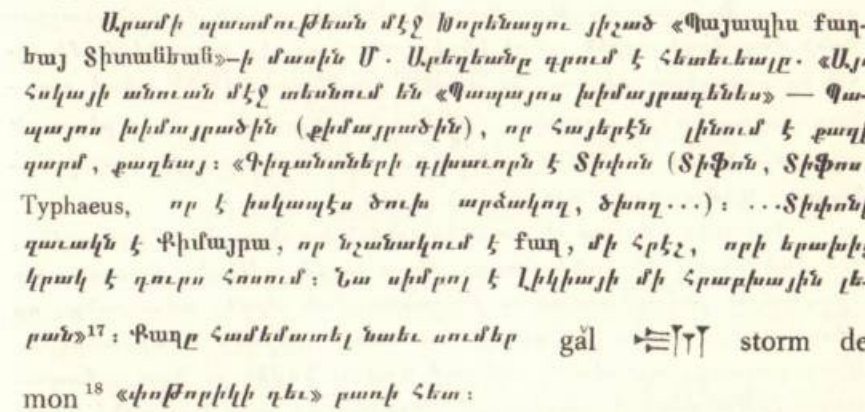 Արամի պատմութեան մէջ Խորենացու յիշած «Պայապիս քաղ-
եայ Տիտանեան»-ի մասին Մ. Աբեղեանը գրում է հետեւեալը. «Այս
հսկայի անուան մէջ տեսնում են «Պապայոս խիմայրագենես» — Պա-
պայոս խիմայրածին (քիմայրածին), որ հայերէն լինում է քաղի
զարմ, քաղեայ: «Գիգանտների գլխաւորն է Տիփոն (Տիֆոն, Տիֆոս
Typhaeus, որ է իսկապէս ծուխ արձակող, ծխող...): ...Տիփոնի
զաւակն է Քիմայրա, որ նշանակում է քաղ, մի հրէշ, որի երախից
կրակ է դուրս հոսում: Նա սիմբոլ է Լիկիայի մի հրաբխային լե-
րան»17: Քաղը համեմատել նաեւ սումեր gǎl storm de
mon 18 «փոթորիկի դեւ» բառի հետ: